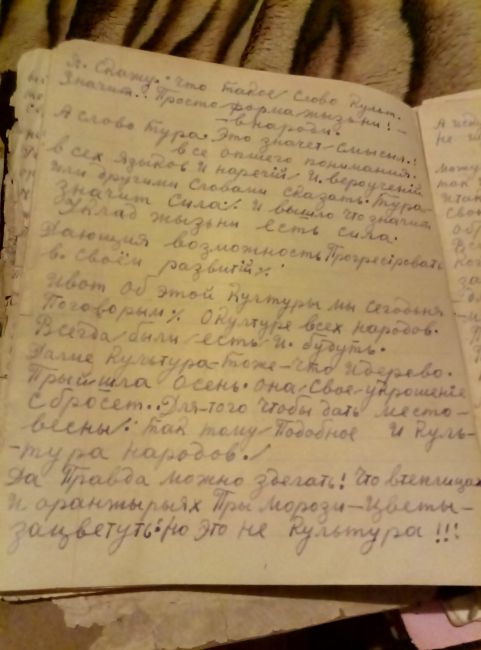 Я. Скажу. что такое слово культ.
Значит.. Просто форма жызьни! –
– в народи.
А слово тура. Это значет смысил.!
все опшего понимания.
в сех языков и наречий. И. вероучений
или другими словами сказать. тура –
значит сила%. И вышло что значит
Уклад жызьни есть сила.
Дающия возможность Прогресировать
в. своём развитій%
Ивот об этой культуры мы сегодьня
Поговорым% О културе всех народов.
Всегда были есть и. будуть.
Далие культура – тоже – что и дерево.
Прыйшла осень. она свое укрошение
сбросет.. Для-того чтобы дать место –
весны. так тому Подобное и куль-
– тура народов.
Да Правда можно збегать! Что втеплицах
и оранжырыях Пры морози – Цветы –
зацветуть: но это не культура !!!